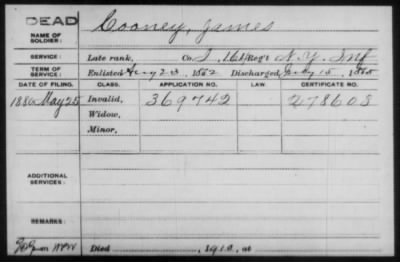 DEAD
NAME OF SOLDIER: Cooney, James
SERVICE: Late rank, Co. I, 161 Reg't N.Y. Inf
TERM OF SERVICE: Enlisted 23, 1862 Discharged 15, 1865
DATE OF FILING. CLASS. APPLICATION NO. LAW. CERTIFICATE NO.
1880 May 25 Invalid, 369742 278603
Widow,
Minor,
ADDITIONAL SERVICES:
REMARKS:
Died , 1910, at